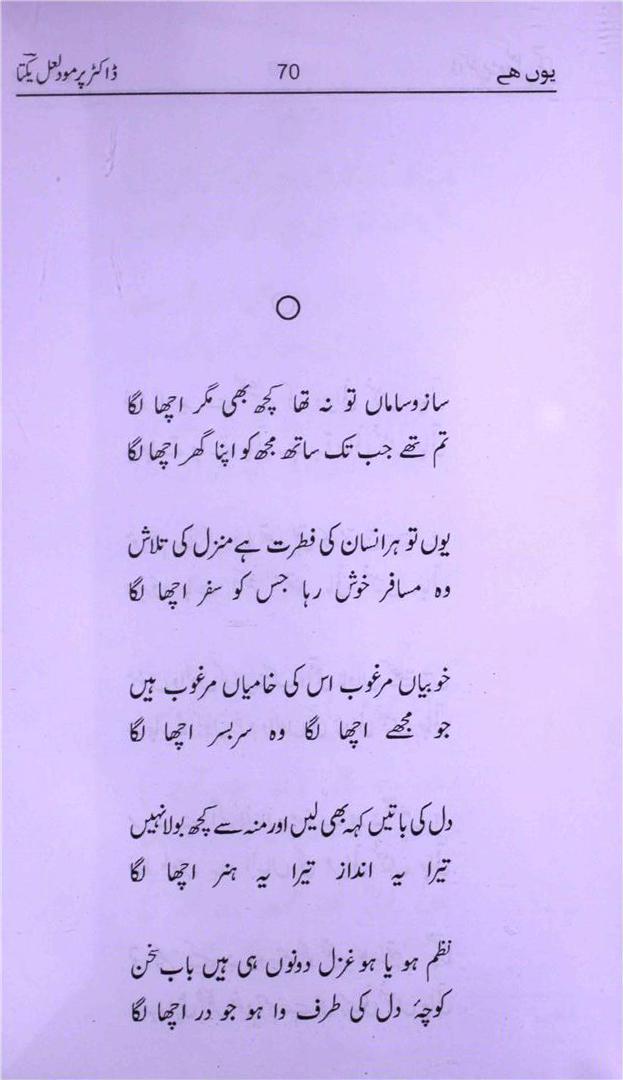 یوں ھے 70 ڈاکٹر پرمود لعل یکتا
سازوساماں تو نہ تھا کچھ بھی مگر اچھا لگا
تم تھے جب تک ساتھ مجھ کو اپنا گھر اچھا لگا
یوں تو ہر انسان کی فطرت ہے منزل کی تلاش
وہ مسافر خوش رہا جس کو سفر اچھا لگا
خوبیاں مرغوب اس کی خامیاں مرغوب ہیں
جو مجھے اچھا لگا وہ سربسر اچھا لگا
دل کی باتیں کہہ بھی لیں اور منہ سے کچھ بولا نہیں
تیرا یہ انداز تیرا یہ ہنر اچھا لگا
نظم ہو یا ہو غزل دونوں ہی ہیں باب سخن
کوچۂ دل کی طرف وا ہو جو در اچھا لگا